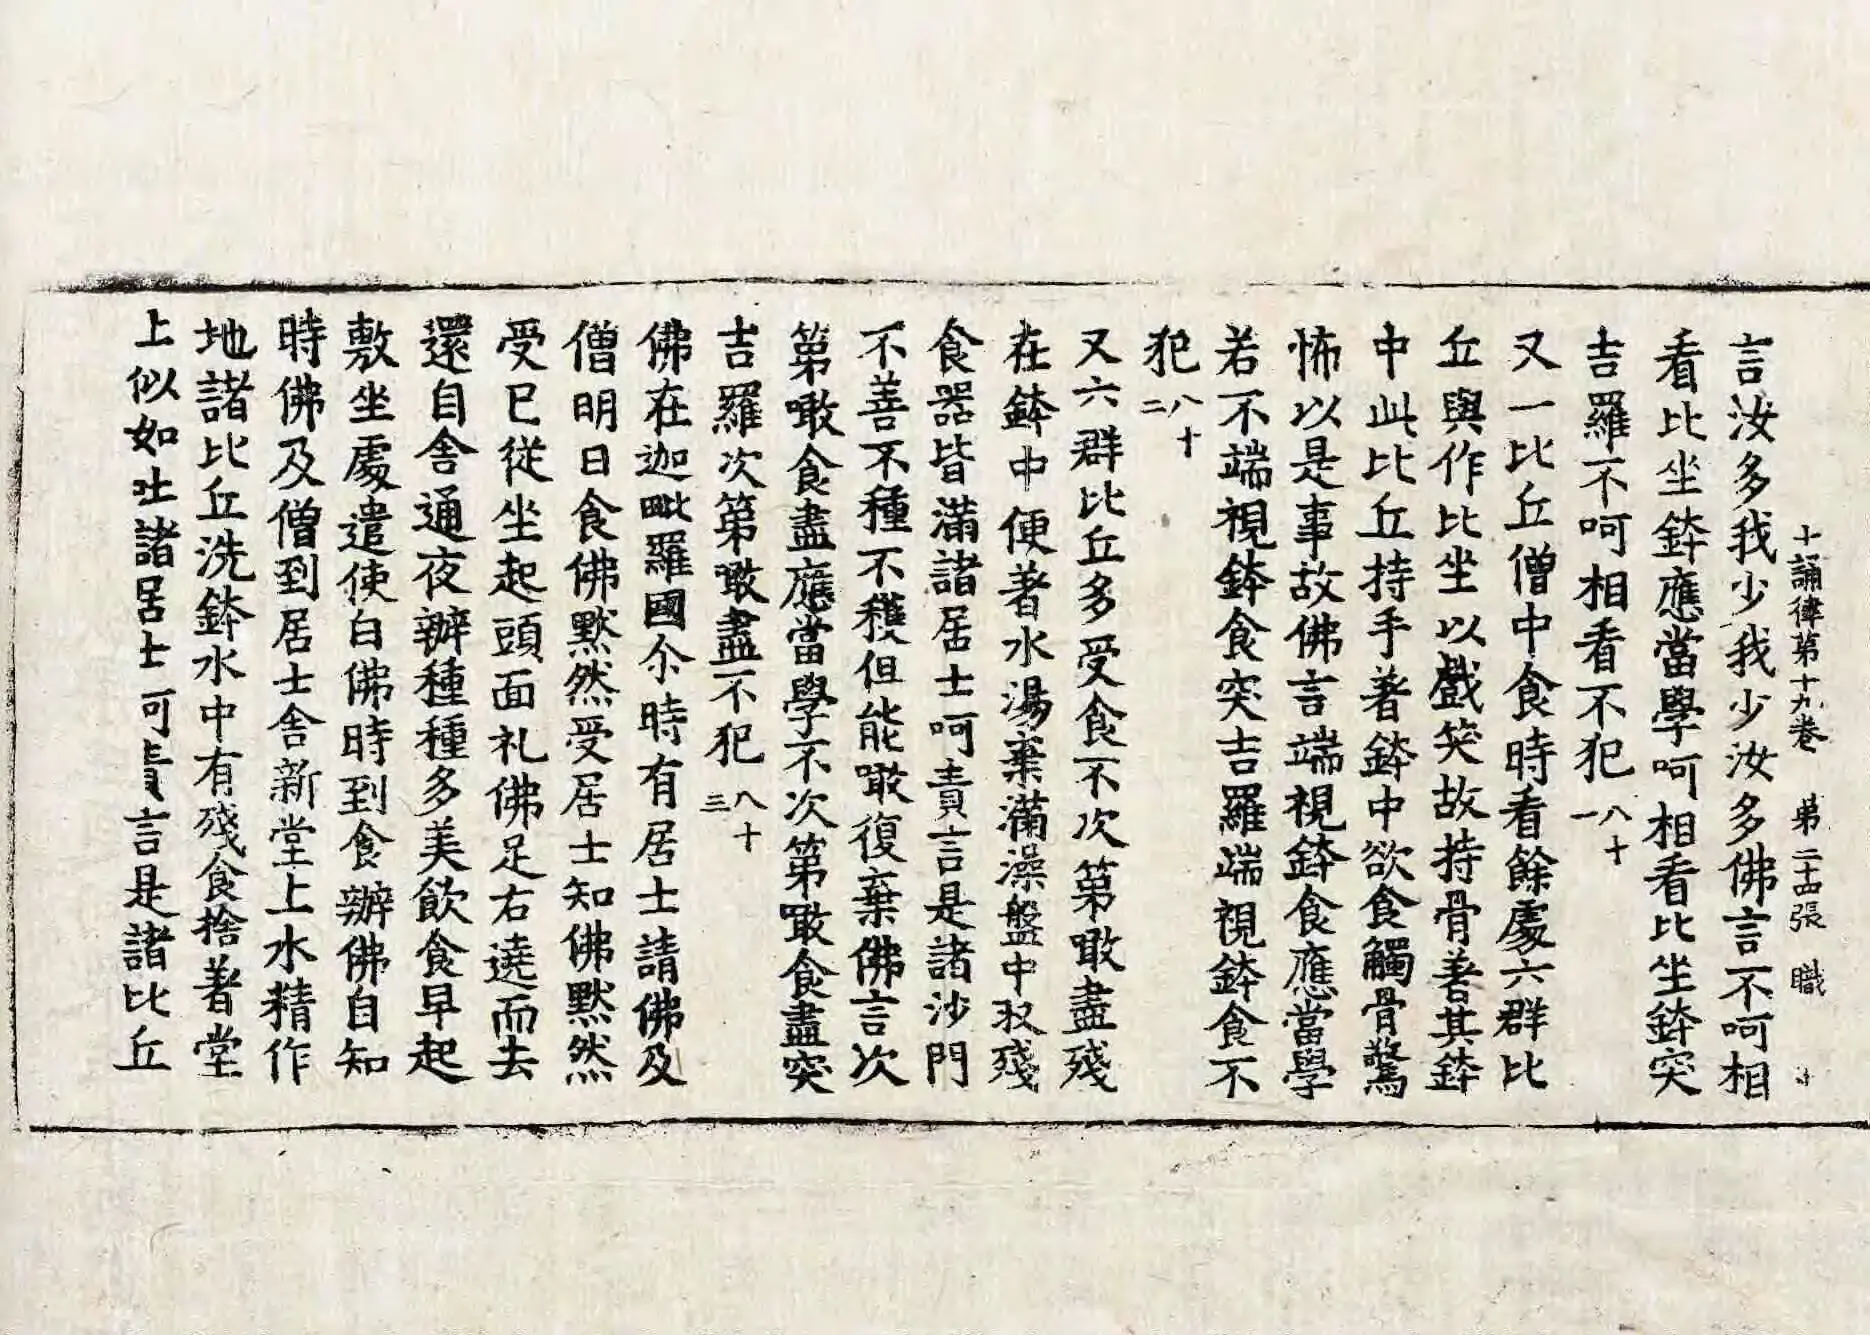 十誦律第十九卷 第二十四張 職
言汝多我少我少汝多佛言不呵相
看比坐鉢應當學呵相看比坐鉢突
吉羅不呵相看不犯八十一
又一比丘僧中食時看餘處六群比
丘與作比坐以戲笑故持骨著其鉢
中此比丘持手著鉢中欲食觸骨驚
怖以是事故佛言端視鉢食應當學
若不端視鉢食突吉羅端視鉢食不
犯八十二
又六群比丘多受食不次第噉盡殘
在鉢中便著水湯棄滿澡盤中㕛殘
食器皆滿諸居士呵責言是諸沙門
不善不種不穫但能噉復棄佛言次
第噉食盡應當學不次第噉食盡突
吉羅次第噉盡不犯八十三
佛在迦毗羅國尒時有居士請佛及
僧明日食佛默然受居士知佛默然
受已從坐起頭面礼佛足右遶而去
還自舍通夜辦種種多美飲食早起
敷坐處遣使白佛時到食辦佛自知
時佛及僧到居士舍新堂上水精作
地諸比丘洗鉢水中有殘食捨著堂
上似如吐諸居士呵責言是諸比丘